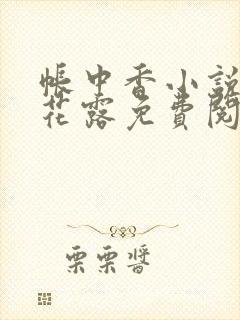 帳中香小說
花露免費閱
栗栗醬